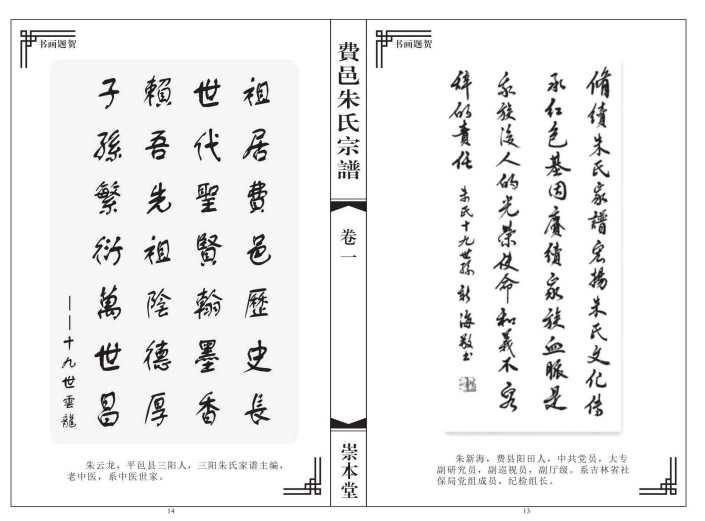 书画题贺
脩續朱氏家譜宏揚朱氏文化傳
承红色基因賡續家族血脈是
家族後人的光榮使命和義不容
辞的責任 朱氏十九世孫 新海敬书
朱新海，费县阳田人，中共党员，大专
副研究员，副巡视员，副厅级。系吉林省社
保局党组成员，纪检组长。
13
費邑朱氏宗譜
卷一
崇本堂
书画题贺
祖居費邑歷史長
世代聖賢翰墨香
賴吾先祖陰德厚
子孫繁衍萬世昌
——十九世雲龍
朱云龙，平邑县三阳人，三阳朱氏家谱主编，
老中医，系中医世家。
14